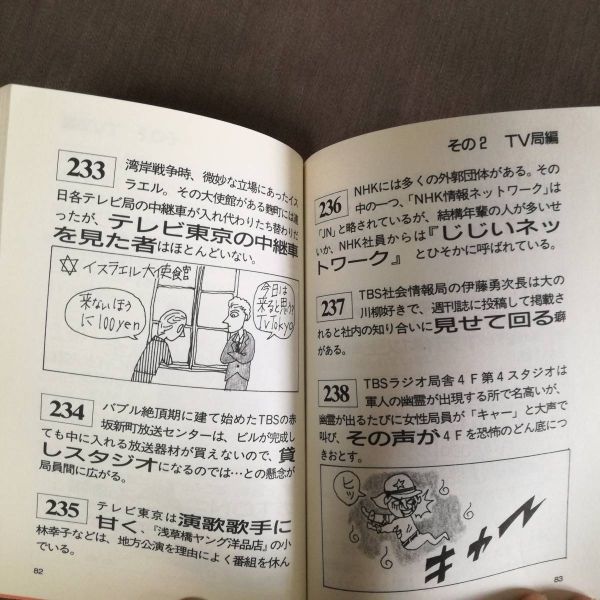 233 湾岸戦争時、微妙な立場にあったイス
ラエル。その大使館がある麹町には連
日各テレビ局の中継車が入れ代わりたち替わりだ
ったが、テレビ東京の中継車
を見た者はほとんどいない。
イスラエル大使官
来ないほう
に100yen
今日は
来ると思う？
TV Tokyo
234 バブル絶頂期に建て始めたTBSの赤
坂新町放送センターは、ビルが完成し
ても中に入れる放送器材が買えないので、貸
しスタジオになるのでは…との懸念が
局員間に広がる。
235 テレビ東京は演歌歌手に
甘く、『浅草橋ヤング洋品店』の小
林幸子などは、地方公演を理由によく番組を休ん
でいる。
82
その2 TV局編
236 NHKには多くの外郭団体がある。その
中の一つ、「NHK情報ネットワーク」は
「JN」と略されているが、結構年輩の人が多いせ
いか、NHK社員からは『じじいネッ
トワーク』とひそかに呼ばれている。
237 TBS社会情報局の伊藤勇次長は大の
川柳好きで、週刊誌に投稿して掲載さ
れると社内の知り合いに見せて回る癖
がある。
238 TBSラジオ局舎4F第4スタジオは
軍人の幽霊が出現する所で名高いが、
幽霊が出るたびに女性局員が「キャー」と大声で
叫び、その声が4Fを恐怖のどん底につ
きおとす。
ヒッ
キャー
83